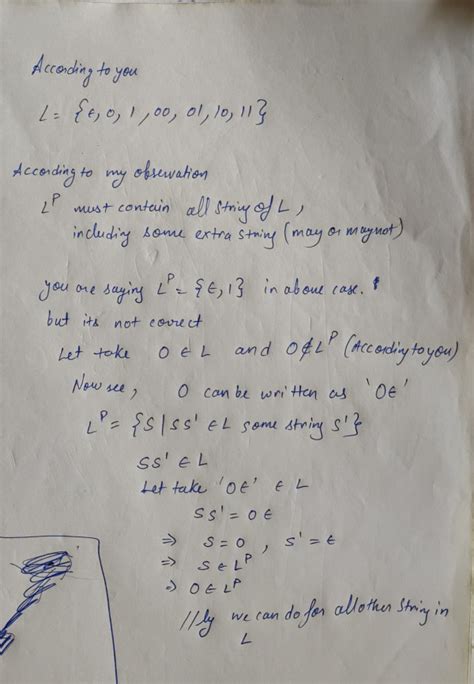 According to you
L = {ϵ, 0, 1, 00, 01, 10, 11}
According to my observation
L^P must contain all string of L,
including some extra string (may or maynot)
you are saying L^P = {ϵ, 1} in above case.
but its not correct
Let take 0 ∈ L and 0 ∉ L^P (According to you)
Now see, 0 can be written as '0ϵ'
L^P = {S | SS' ∈ L some string S'}
SS' ∈ L
Let take '0ϵ' ∈ L
SS' = 0ϵ
⇒ S = 0, S' = ϵ
⇒ S ∈ L^P
⇒ 0 ∈ L^P
//ly we can do for all other string in
L